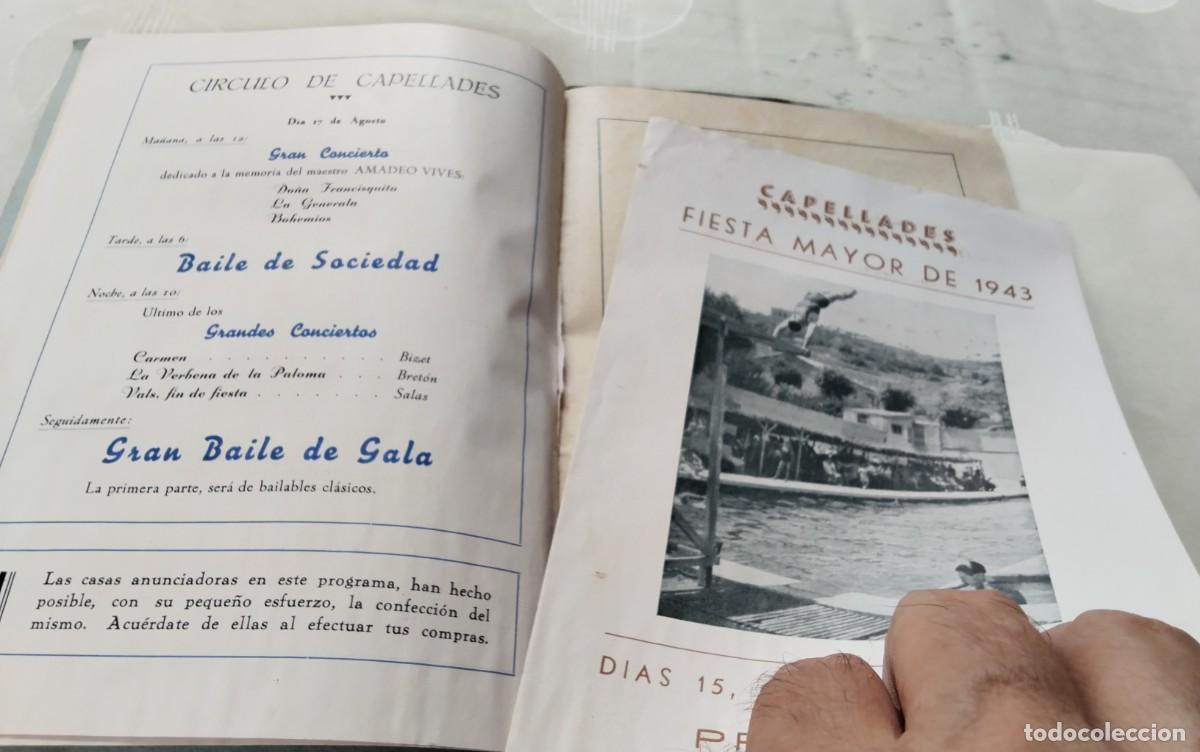 CIRCULO DE CAPELLADES
Dia 17 de Agosto
Mañana, a las 12:
Gran Concierto
dedicado a la memoria del maestro AMADEO VIVES:
Doña Francisquita
La Generala
Bohemios
Tarde, a las 6:
Baile de Sociedad
Noche, a las 10:
Ultimo de los
Grandes Conciertos
Carmen . . . . . . . . . . Bizet
La Verbena de la Paloma . . . Bretón
Vals, fin de fiesta . . . . . . . Salas
Seguidamente:
Gran Baile de Gala
La primera parte, será de bailables clásicos.
Las casas anunciadoras en este programa, han hecho
posible, con su pequeño esfuerzo, la confección del
mismo. Acuérdate de ellas al efectuar tus compras.
CAPELLADES
FIESTA MAYOR DE 1943
DIAS 15,
todocoleccion